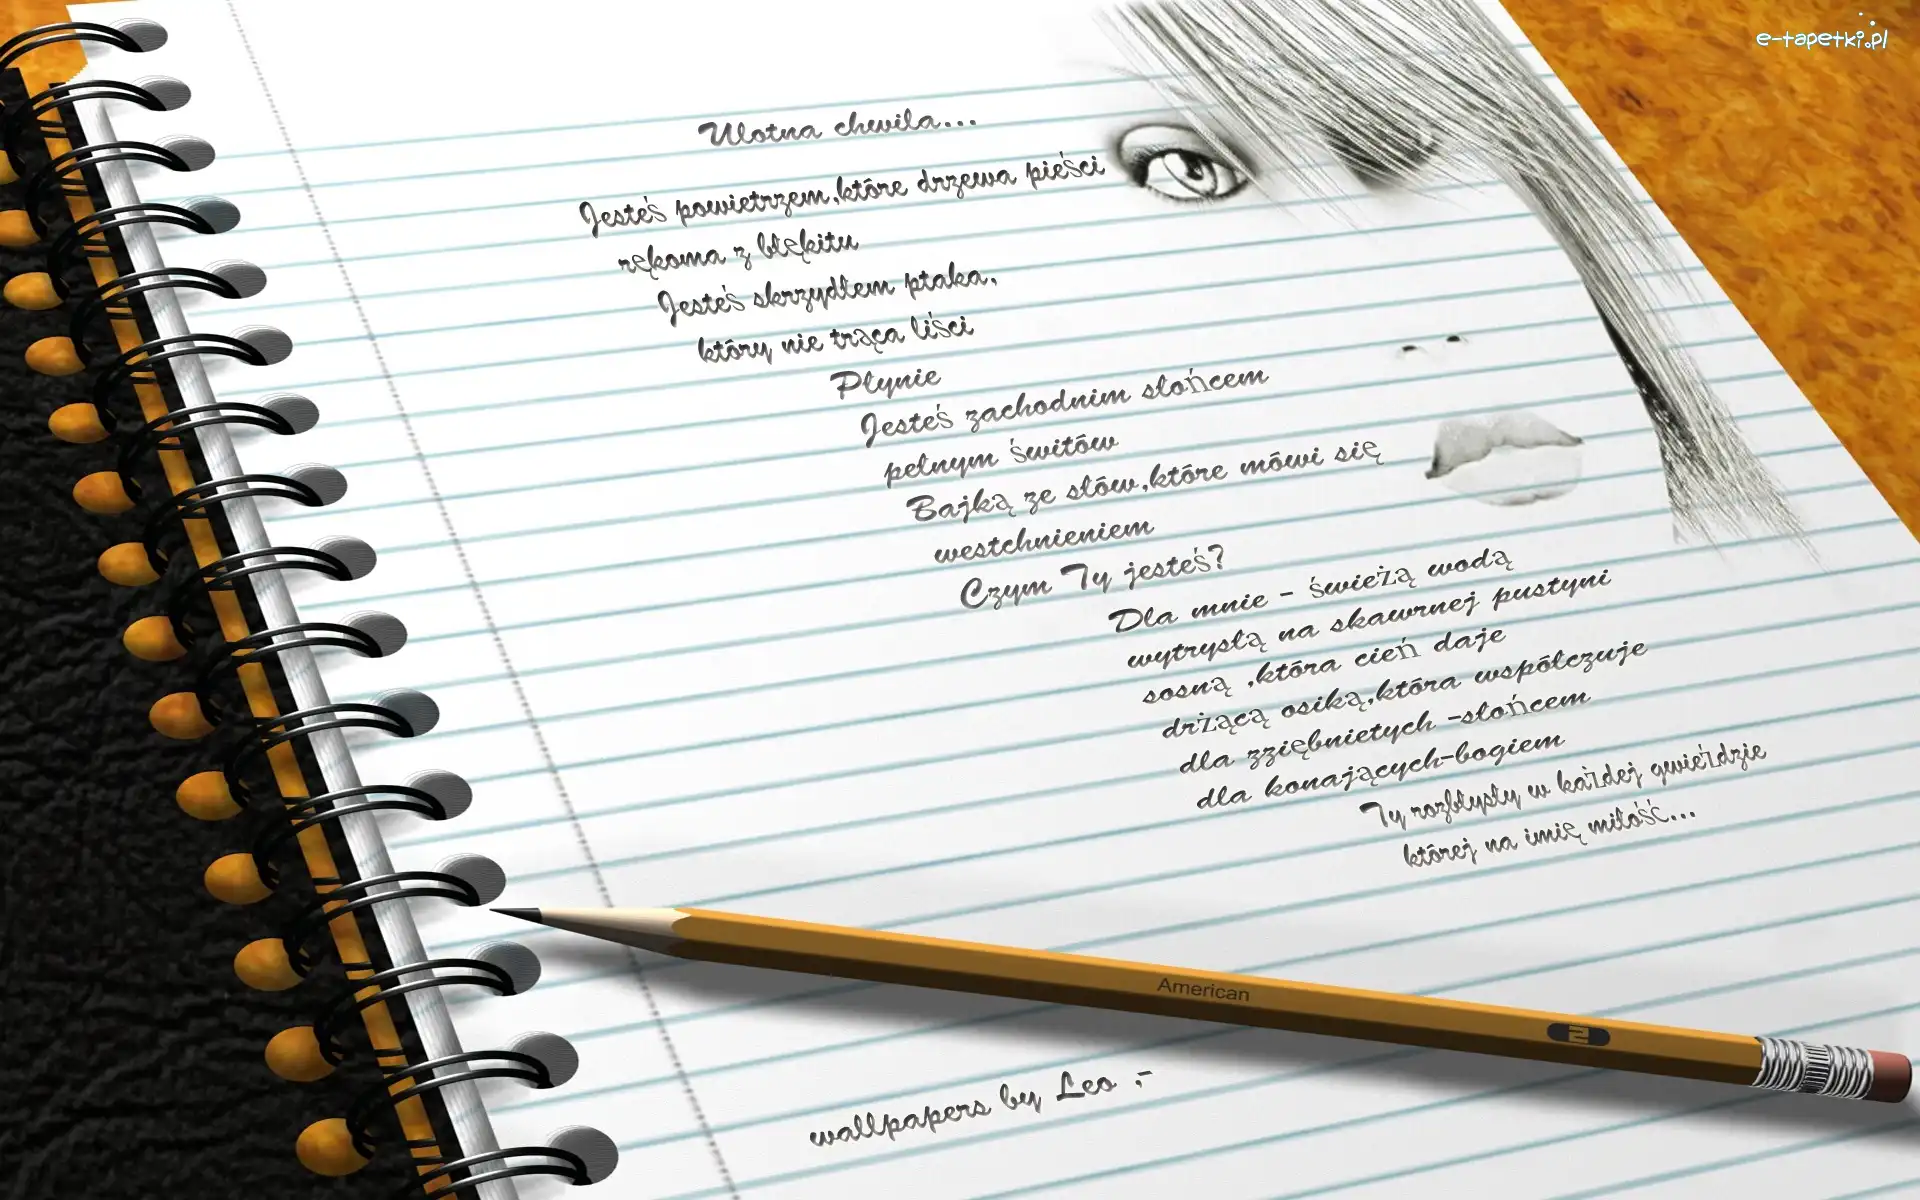 e-tapetki.pl
Ulotna chwila...
Jesteś powietrzem,które drzewa pieści
rękoma z błękitu
Jesteś skrzydłem ptaka,
który nie trąca liści
Płynie
Jesteś zachodnim słońcem
pełnym świtów
Bajką ze słów,które mówi się
westchnieniem
Czym Ty jesteś?
Dla mnie - świeżą wodą
wytrysłą na skawrnej pustyni
sosną ,która cień daje
drżącą osiką,która współczuje
dla zziębnietych -słońcem
dla konających-bogiem
Ty rozbłysły w każdej gwieździe
której na imię miłość...
American
2
wallpapers by Leo ;-